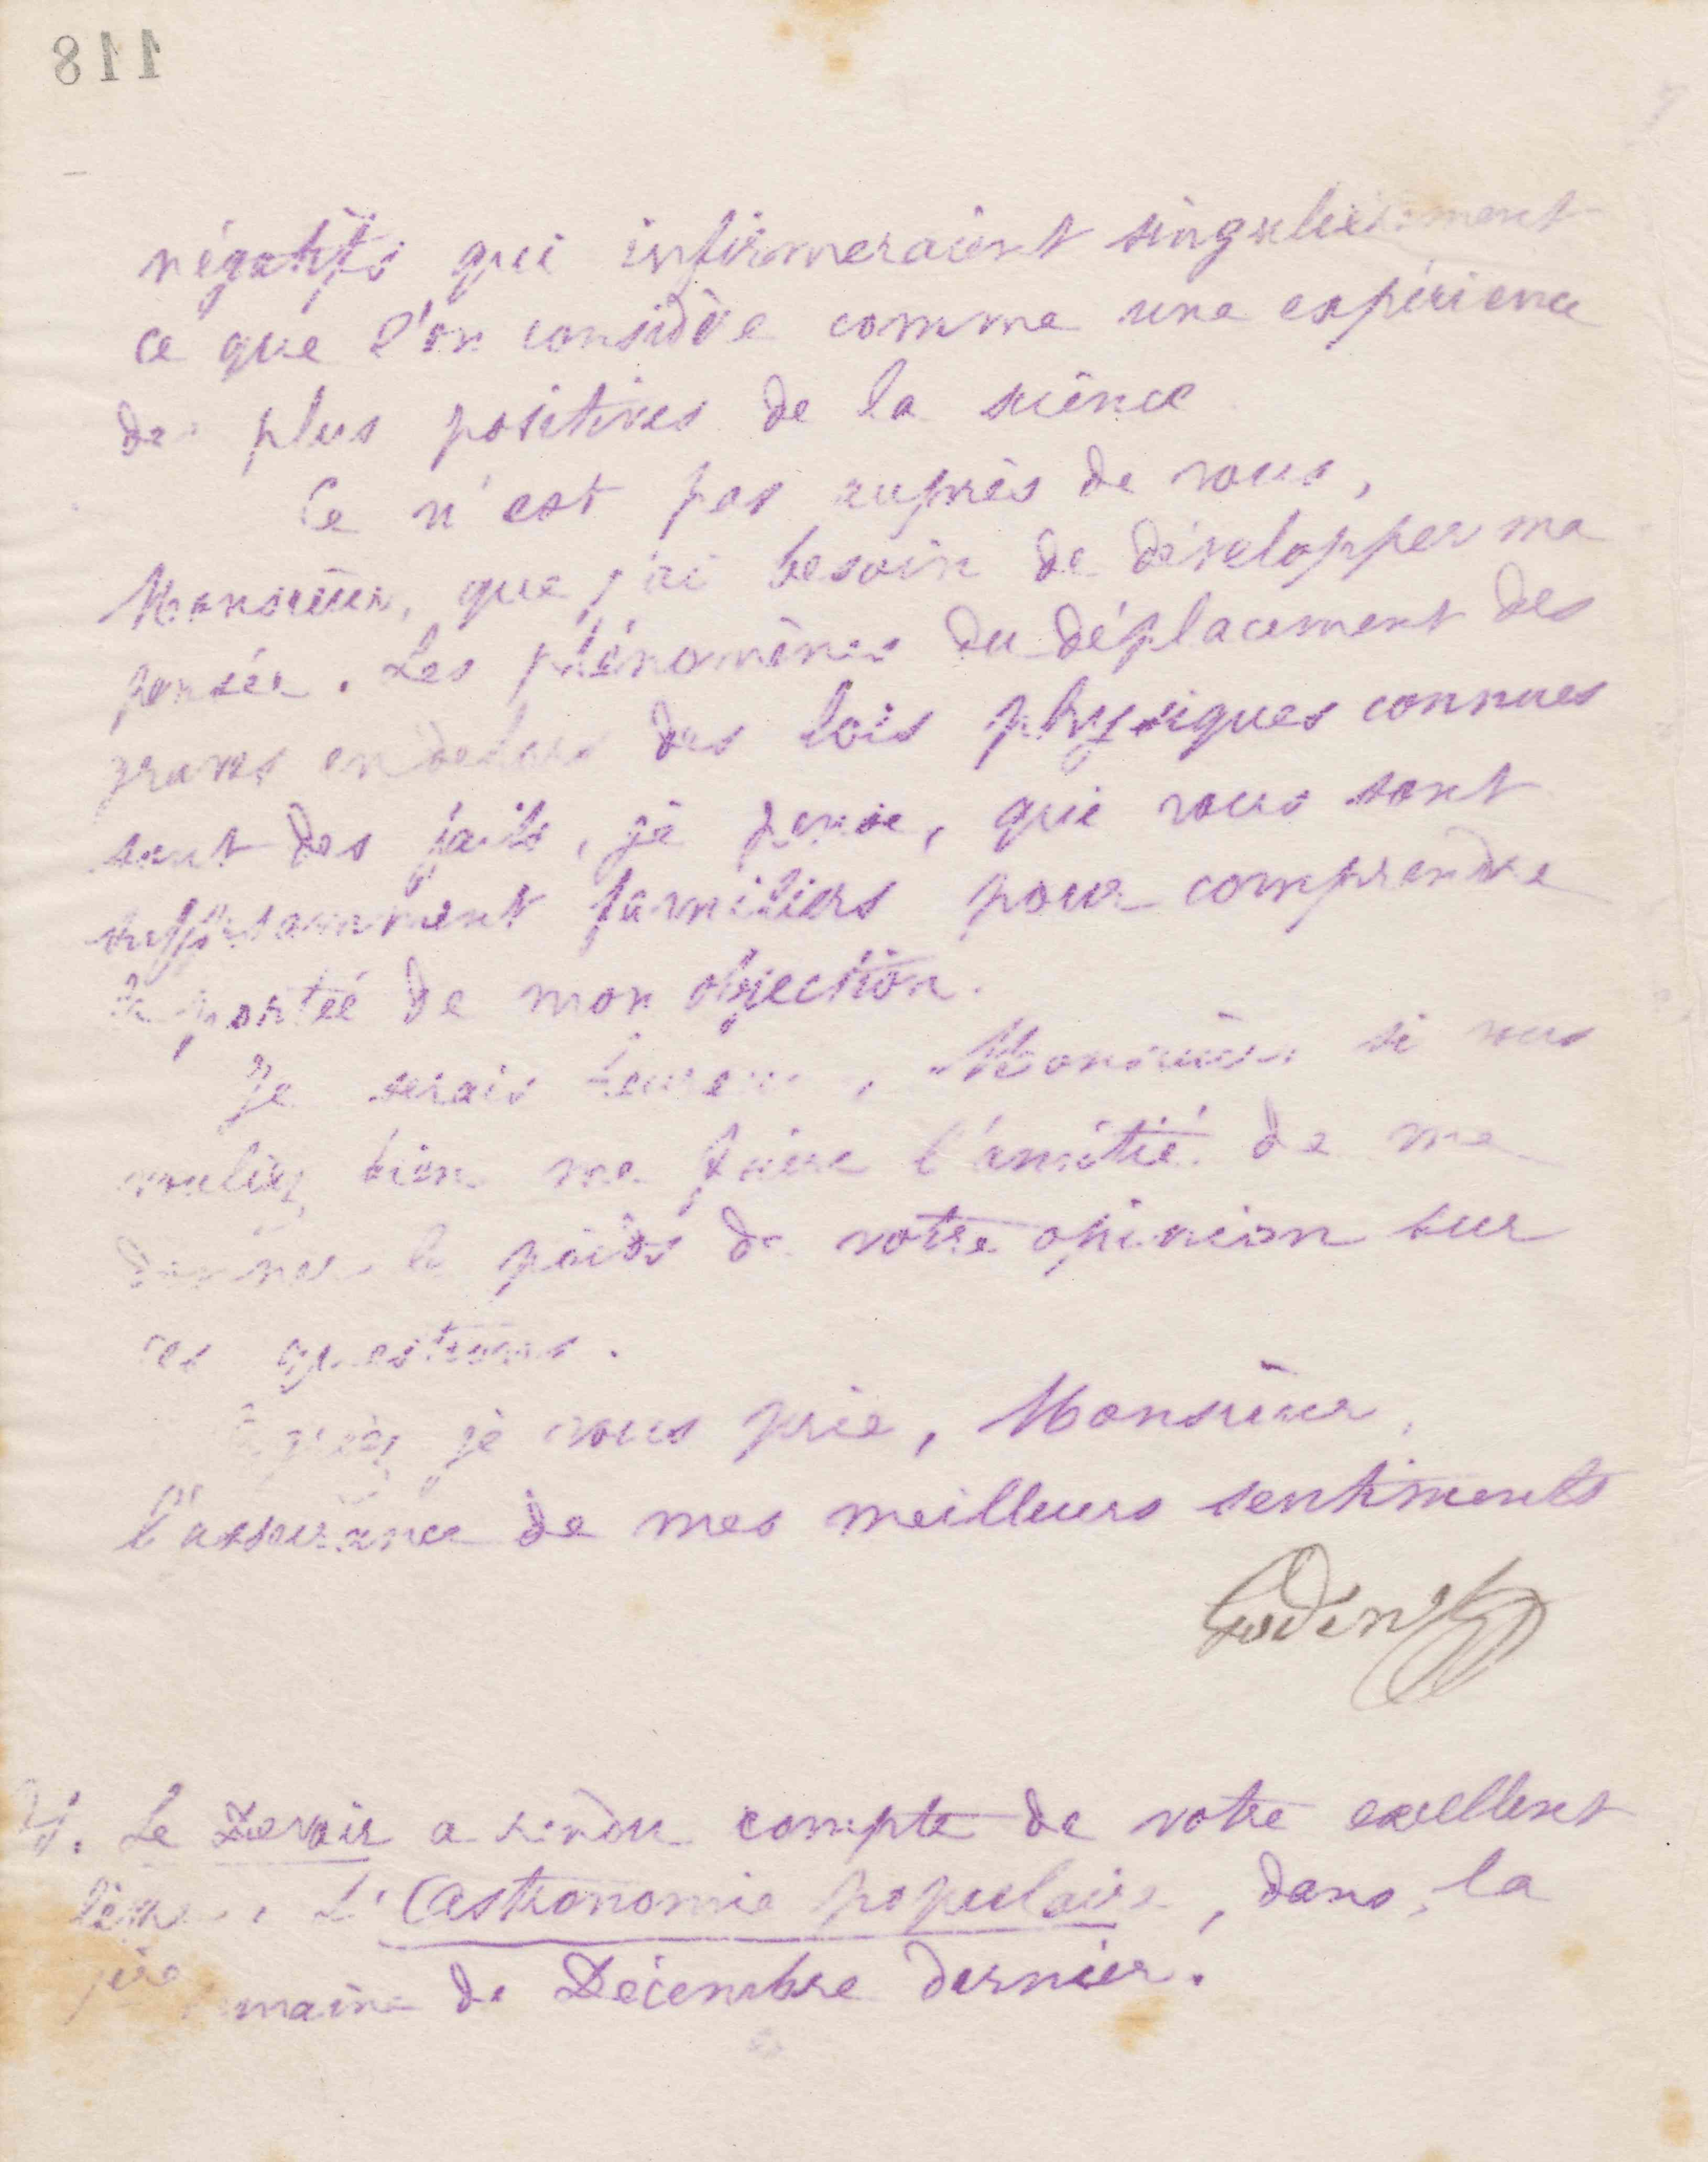 118
négatifs qui infirmeraient singulièrement
ce que l'on considère comme une expérience
des plus positives de la science
Ce n'est pas auprès de vous,
Monsieur, que j'ai besoin de développer ma
pensée. Les phénomènes du déplacement des
graves en dehors des lois physiques connues
sont des faits, je pense, qui vous sont
suffisamment familiers pour comprendre
la portée de mon objection.
Je serais heureux, Monsieur, si vous
vouliez bien me faire l'amitié de me
donner le poids de votre opinion sur
ces questions.
Agréez je vous prie, Monsieur,
l'assurance de mes meilleurs sentiments
Godin
Le Devoir a rendu compte de votre excellent
L'Astronomie populaire, dans la
1ère semaine de Décembre dernier.